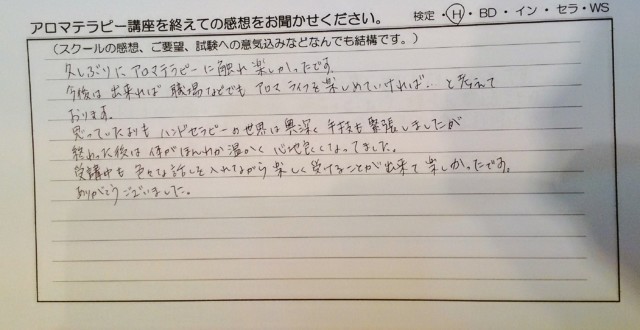 アロマテラピー講座を終えての感想をお聞かせください。 検定・Ⓗ・BD・イン・セラ・WS
(スクールの感想、ご要望、試験への意気込みなどなんでも結構です。)
久しぶりに アロマテラピーに触れ 楽しかったです。
今後は 出来れば 職場などでも アロマ ライフを楽しめていければ… と考えて
おります。
思っていたよりも ハンドセラピーの世界は奥深く 手技も緊張しましたが
終わった後は 体がほんわか温かく 心地良くなってました。
受講中も 色々な話しを入れながら 楽しく受けることが出来て楽しかったです。
ありがとうございました。